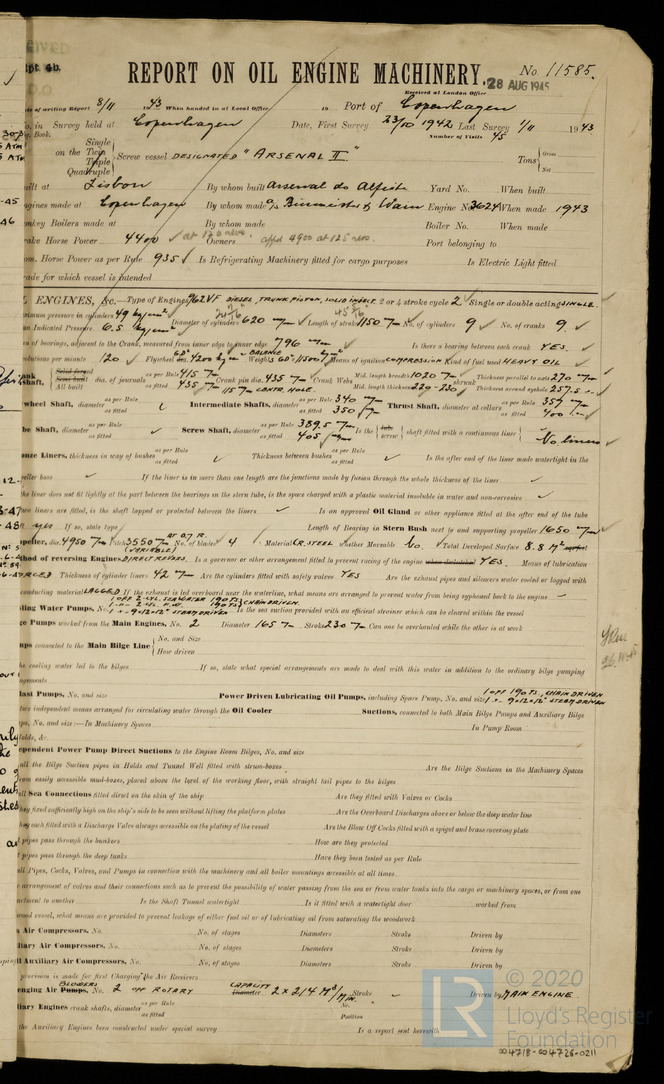 REPORT ON OIL ENGINE MACHINERY.
No 11585.
28 AUG 1945
Received at London Office
Date of writing Report 8/11 1943 When handed in at Local Office 19 Port of Copenhagen
in Survey held at Copenhagen Date, First Survey 23/10 1942 Last Survey 1/11 1943
Number of Visits 45
Single
on the Twin
Triple
Quadruple
Screw vessel DESIGNATED "ARSENAL II"
Tons Gross
Net
built at Lisbon By whom built Arsenal do Alfeite Yard No. When built
Engines made at Copenhagen By whom made a/s Burmeister & Wain Engine No. 3624 When made 1943
Donkey Boilers made at By whom made Boiler No. When made
Brake Horse Power 4400 Owners Port belonging to
Nom. Horse Power as per Rule 935 Is Refrigerating Machinery fitted for cargo purposes Is Electric Light fitted
Trade for which vessel is intended
OIL ENGINES, &c.—Type of Engines 962VF DIESEL, TRUNK PISTON, SOLID INJECT. 2 or 4 stroke cycle 2 Single or double acting SINGLE.
Maximum pressure in cylinders 49 kg/cm² Diameter of cylinders 620 m/m Length of stroke 1150 m/m No. of cylinders 9 No. of cranks 9
Mean Indicated Pressure 6.5 kg/cm²
of bearings, adjacent to the Crank, measured from inner edge to inner edge 796 m/m Is there a bearing between each crank YES.
Revolutions per minute 120 Means of ignition COMPRESSION Kind of fuel used HEAVY OIL
dia. of journals as per Rule 415 m/m as fitted 435 m/m Crank pin dia. 435 m/m Crank Webs Mid. length breadth 1020 m/m Thickness parallel to axis 270 m/m
115 m/m CENTR. HOLE. Mid. length thickness 220-230 shrunk Thickness around eyehole 257.5
Flywheel Shaft, diameter as per Rule as fitted Intermediate Shafts, diameter as per Rule 340 m/m as fitted 350 Thrust Shaft, diameter at collars as per Rule 357 m/m as fitted 400
Tube Shaft, diameter as per Rule as fitted Screw Shaft, diameter as per Rule 389.5 m/m as fitted 405 Is the tube screw shaft fitted with a continuous liner No liners
Bronze Liners, thickness in way of bushes as per Rule as fitted Thickness between bushes as per Rule as fitted Is the after end of the liner made watertight in the
propeller boss If the liner is in more than one length are the junctions made by fusion through the whole length of the liner
the liner does not fit tightly at the part between the bearings in the stern tube, is the space charged with a plastic material insoluble in water and non-corrosive
two liners are fitted, is the shaft lapped or protected between the liners Is an approved Oil Gland or other appliance fitted at the after end of the tube
yes If so, state type Length of Bearing in Stern Bush next to and supporting propeller 1650 m/m
Propeller, dia. 4950 m/m Pitch 3550 m/m AT 0.7 R. (VARIABLE) No. of blades 4 Material CR. STEEL whether Moveable No. Total Developed Surface 8.8 m²
Method of reversing Engines DIRECT REVERS. Is a governor or other arrangement fitted to prevent racing of the engine YES. Means of lubrication
FORCED Thickness of cylinder liners 42 m/m Are the cylinders fitted with safety valves YES Are the exhaust pipes and silencers water cooled or lagged with
non-conducting material LAGGED If the exhaust is led overboard near the waterline, what means are arranged to prevent water being syphoned back to the engine
Cooling Water Pumps, No. Is the sea suction provided with an efficient strainer which can be cleared within the vessel
CHAIN DRIVEN. 9"×12"×12" STEAM DRIVEN
Bilge Pumps worked from the Main Engines, No. 2 Diameter 165 m/m Stroke 230 m/m Can one be overhauled while the other is at work
Pumps connected to the Main Bilge Line No. and Size
How driven
the cooling water led to the bilges If so, state what special arrangements are made to deal with this water in addition to the ordinary bilge pumping
arrangements
Ballast Pumps, No. and size Power Driven Lubricating Oil Pumps, including Spare Pump, No. and size 1 OFF 190 TS, CHAIN DRIVEN
9×12×12" STEAM DRIVEN
two independent means arranged for circulating water through the Oil Cooler Suctions, connected to both Main Bilge Pumps and Auxiliary Bilge
Pumps, No. and size:—In Machinery Spaces In Pump Room
Holds, &c.
Independent Power Pump Direct Suctions to the Engine Room Bilges, No. and size
all the Bilge Suction pipes in Holds and Tunnel Well fitted with strum-boxes Are the Bilge Suctions in the Machinery Spaces
from easily accessible mud-boxes, placed above the level of the working floor, with straight tail pipes to the bilges
all Sea Connections fitted direct on the skin of the ship Are they fitted with Valves or Cocks
they fixed sufficiently high on the ship's side to be seen without lifting the platform plates Are the Overboard Discharges above or below the deep water line
they each fitted with a Discharge Valve always accessible on the plating of the vessel Are the Blow Off Cocks fitted with a spigot and brass covering plate
pipes pass through the bunkers How are they protected
pipes pass through the deep tanks Have they been tested as per Rule
all Pipes, Cocks, Valves, and Pumps in connection with the machinery and all boiler mountings accessible at all times
arrangement of valves and their connections such as to prevent the possibility of water passing from the sea or from water tanks into the cargo or machinery spaces, or from one
compartment to another Is the Shaft Tunnel watertight Is it fitted with a watertight door worked from
wood vessel, what means are provided to prevent leakage of either fuel oil or of lubricating oil from saturating the woodwork
Air Compressors, No. No. of stages Diameters Stroke Driven by
Auxiliary Air Compressors, No. No. of stages Diameters Stroke Driven by
Auxiliary Air Compressors, No. No. of stages Diameters Stroke Driven by
provision is made for first Charging the Air Receivers
Scavenging Air Pumps, BLOWERS No. 2 OFF ROTARY Diameter CAPACITY 2 × 214 M³/MIN. Stroke Driven by MAIN ENGINE
Auxiliary Engines crank shafts, diameter as per Rule as fitted No. Position
the Auxiliary Engines been constructed under special survey Is a report sent herewith
© 2020
Lloyd's Register
Foundation
LR
004718-004726-0211